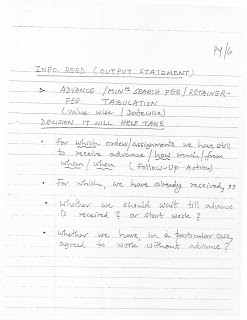 M/6
INFO. REQD (OUTPUT STATEMENT)
> ADVANCE / MINᵐ SEARCH FEE / RETAINER-
FEE TABULATION
(Value Wise / Datewise)
DECISION IT WILL HELP TAKE
• For which orders/assignments we have still
to receive advance / how much / from
whom / when (Follow-Up Action)
• For which, we have already received, ''
• Whether we should wait till advance
is received? or start work?
• Whether we have in a particular case,
agreed to work without advance?